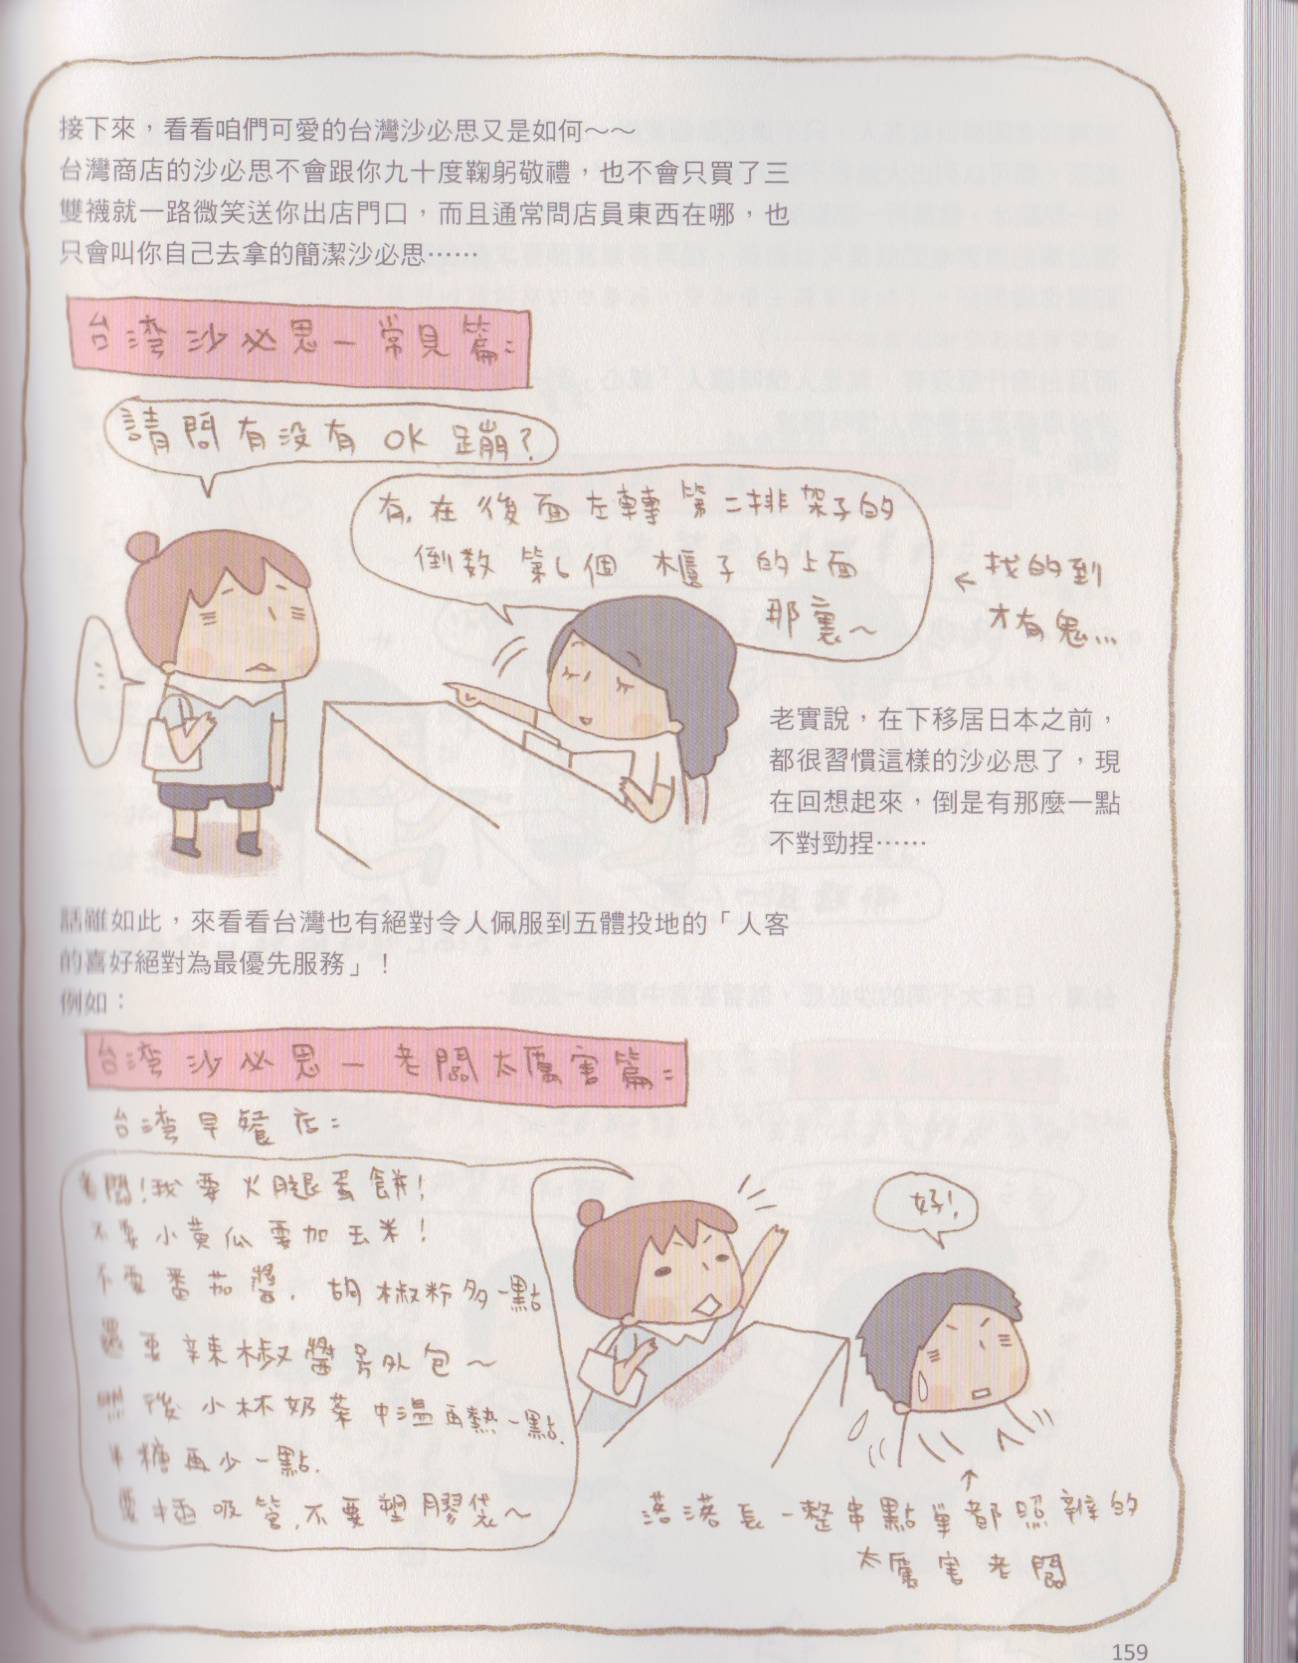 接下來，看看咱們可愛的台灣沙必思又是如何～～
台灣商店的沙必思不會跟你九十度鞠躬敬禮，也不會只買了三
雙襪就一路微笑送你出店門口，而且通常問店員東西在哪，也
只會叫你自己去拿的簡潔沙必思……
台灣沙必思－常見篇：
請問有沒有OK蹦？
有，在後面左轉第二排架子的
倒數第6個櫃子的上面
那裏～
←找的到
才有鬼…
…
老實說，在下移居日本之前，
都很習慣這樣的沙必思了，現
在回想起來，倒是有那麼一點
不對勁捏……
話雖如此，來看看台灣也有絕對令人佩服到五體投地的「人客
的喜好絕對為最優先服務」！
例如：
台灣沙必思－老闆太厲害篇：
台灣早餐店：
老闆！我要火腿蛋餅！
不要小黃瓜要加玉米！
不要番茄醬，胡椒粉多一點
還要辣椒醬另外包～
然後小杯奶茶中溫再熱一點，
半糖再少一點，
要吸管，不要塑膠袋～
好！
落落長一整串點單都照辦的
太厲害老闆
159